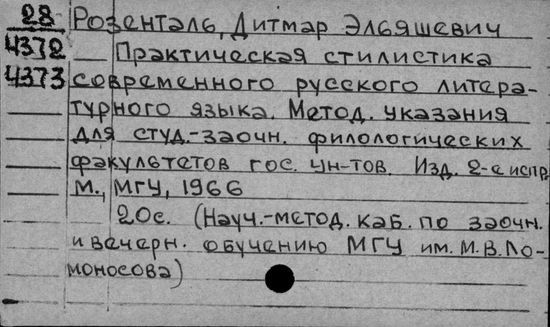 28 Розенталь, Дитмар Эльяшевич
4372 Практическая стилистика
4373 современного русского литера-
турного языка. Метод. указания
для студ.-заочн. филологических
факультетов гос. ун-тов. Изд. 2-е испр.
М., МГУ, 1966
20с. (Науч.-метод. каб. по заочн.
и вечерн. обучению МГУ им. М.В.Ло-
моносова)